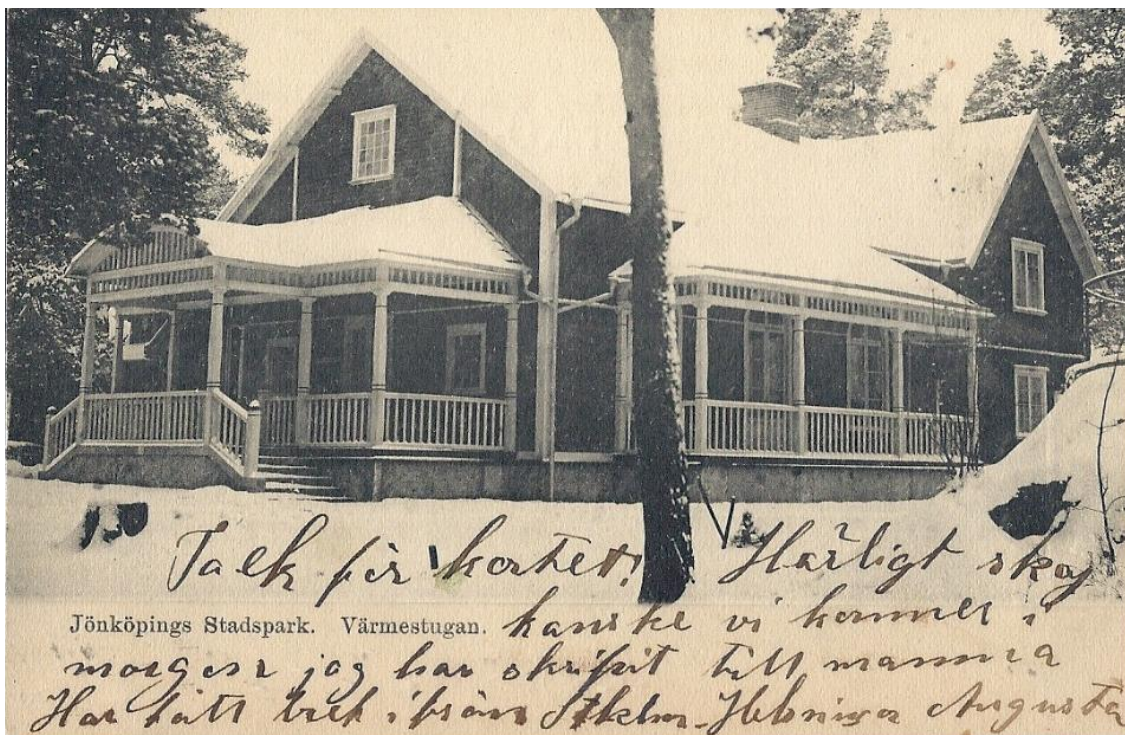 Tack för kortet! Härligt skoj
Jönköpings Stadspark. Värmestugan. kanske vi kommer i
morgon jag har skrifvit till mamma
Har fått bref ifrån Sthlm. Helsninga Augusta